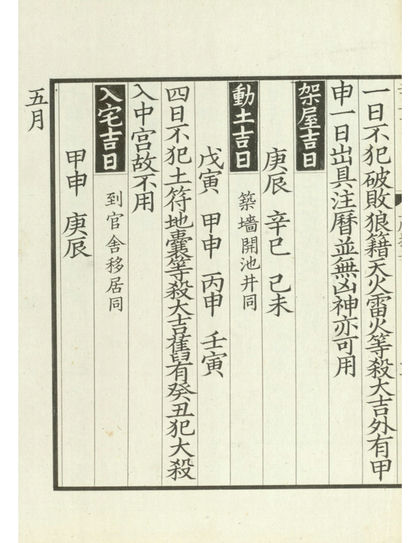 一日不犯破敗狼籍天火雷火等殺大吉外有甲
申一日出具注曆並無凶神亦可用
架屋吉日
庚辰 辛巳 己未
動土吉日 築墻開池井同
戊寅 甲申 丙申 壬寅
四日不犯土符地囊等殺大吉舊有癸丑犯大殺
入中宫故不用
入宅吉日 到官舍移居同
甲申 庚辰
五月